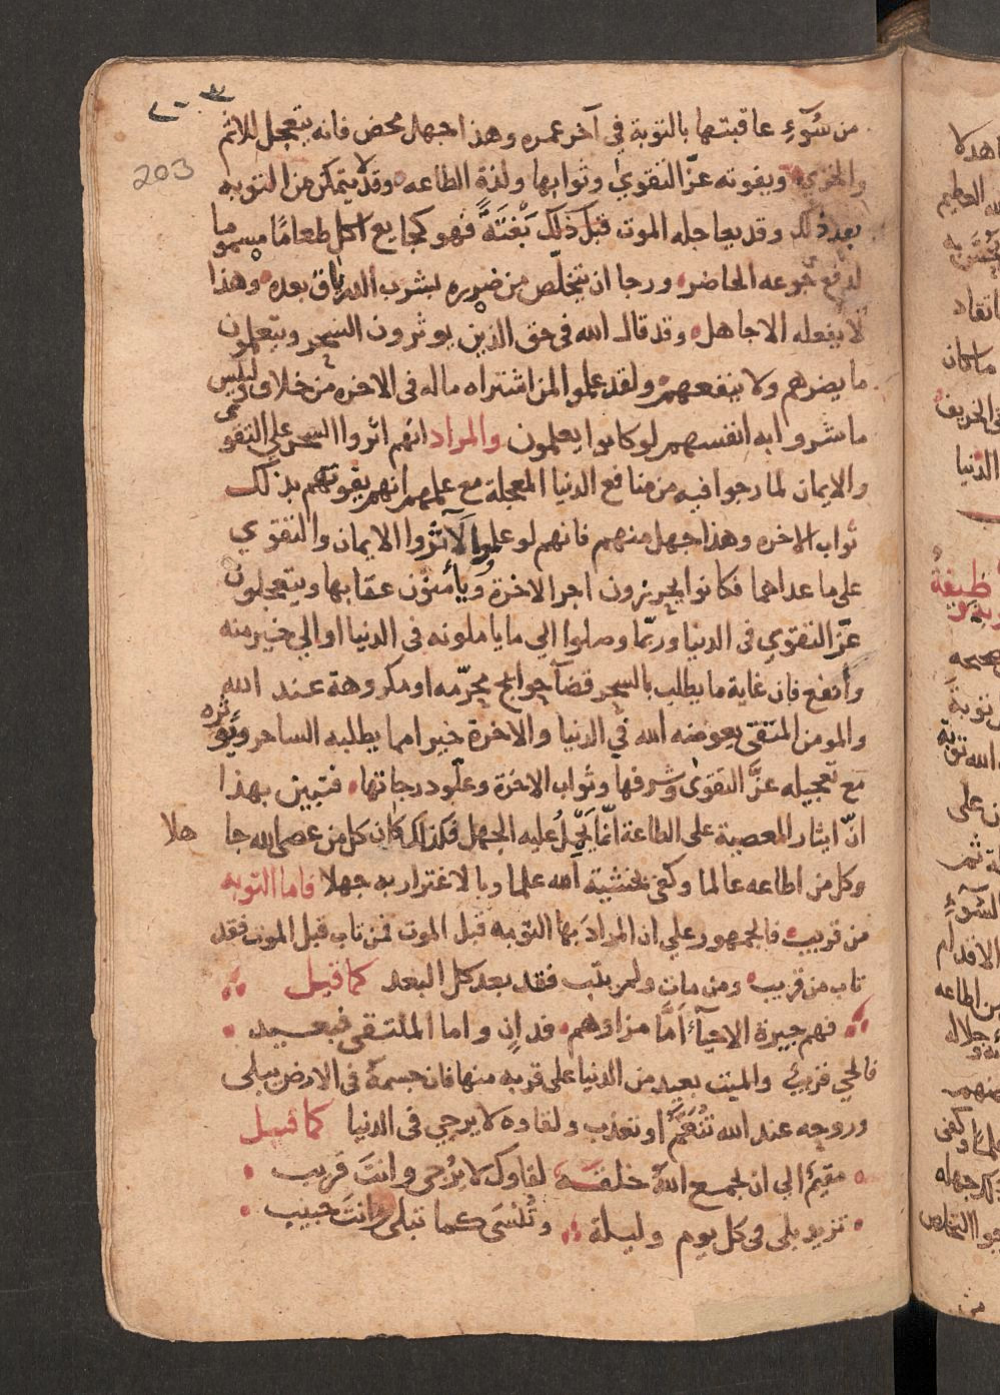 ٢٠٣
203
من سُوٓءِ عاقبتها بالتوبة في آخر عمره وهذا جهل محض فانه يتعجل الاثم
والخزي ويفوته عزّ التقوى وثوابها ولذة الطاعه وقد لا يتمكن من التوبه
بعد ذلك وقد يعاجله الموت قبل ذلك بَغْتَةً فهو كجايع اكل طعامًا مسموما
لدفع جوعه الحاضر ورجا ان يتخلّص من ضرره بشرب الدرياق بعده وهذا
لا يفعله الا جاهل وقد قال الله في حق الذين يوثرون السحر ويتعلمون
ما يضرهم ولا ينفعهم ولقد علموا لمن اشتراه ماله في الاخره من خلاق ولبئس
ما شروا به انفسهم لو كانوا يعلمون والمراد انهم اثروا السحر على التقوى
والايمان لما رجوا فيه من منافع الدنيا المعجلة مع علمهم انهم يفوتهم بذلك
ثواب الاخره وهذا جهل منهم فانهم لو علموا لآثروا الايمان والتقوي
على ما عداهما فكانوا يحرزون اجر الاخرة ويأمنون عقابها ويتعجلون
عزّ التقوي في الدنيا وربّما وصلوا الي ما يأملونه في الدنيا او الي خير منه
وأنفع فان غاية ما يطلب بالسحر قضآ حوايج محرّمه او مكروهة عند الله
والمومن المتقي يعوضه الله في الدنيا والاخرة خيرا مما يطلبه الساحر ويؤثره
مع تعجيله عزَّ التقوى وشرفها وثواب الاخرة وعلّو درجاتها فتبين بهذا
انّ ايثار المعصية على الطاعة انّما يَحْمِلُ عليه الجهل فلذلك كان كل من عصى الله جا هلا
وكل من اطاعه عالما وكفى بخشية الله علما وبالاغترار به جهلا فاما التوبه
من قريب فالجمهور علي ان المرادَ بها التوبه قبل الموت فمن تاب قبل الموت فقد
تاب من قريب ومن مات ولم يتب فقد بعد كل البعد كما قيل
فهم جيرة الاحيآء أمَّا مزارهم فدانٍ واما الملتقى فبعيد
فالحي قريب والميت بعيد من الدنيا على قربه منها فان جسمه في الارض يبلى
وروحه عند الله تُنَعَّم او تعذب ولقاوه لا يرجي في الدنيا كما قيل
مقيمٌ الى ان يجمع اللهُ خلقه لقاوك لا يُرْجى وانتَ قريب
تزيد بلى في كل يوم وليلة وتُنْسَى كما تبلى وانتَ حبيب